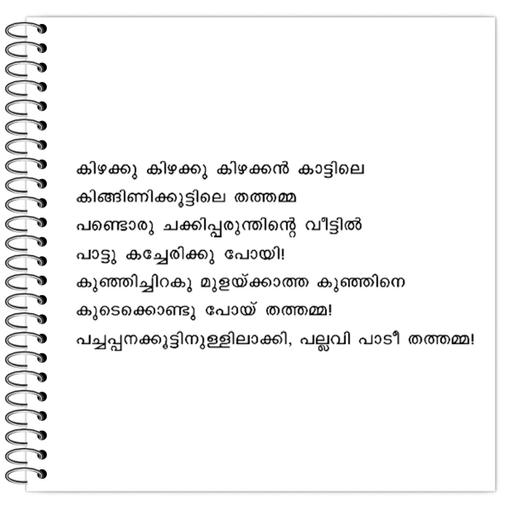 കിഴക്കു കിഴക്കു കിഴക്കൻ കാട്ടിലെ
കിങ്ങിണിക്കൂട്ടിലെ തത്തമ്മ
പണ്ടൊരു ചക്കിപ്പരുന്തിന്റെ വീട്ടിൽ
പാട്ടു കച്ചേരിക്കു പോയി!
കുഞ്ഞിച്ചിറകു മുളയ്ക്കാത്ത കുഞ്ഞിനെ
കൂടെക്കൊണ്ടു പോയ് തത്തമ്മ!
പച്ചപ്പനക്കൂട്ടിനുള്ളിലാക്കി, പല്ലവി പാടീ തത്തമ്മ!